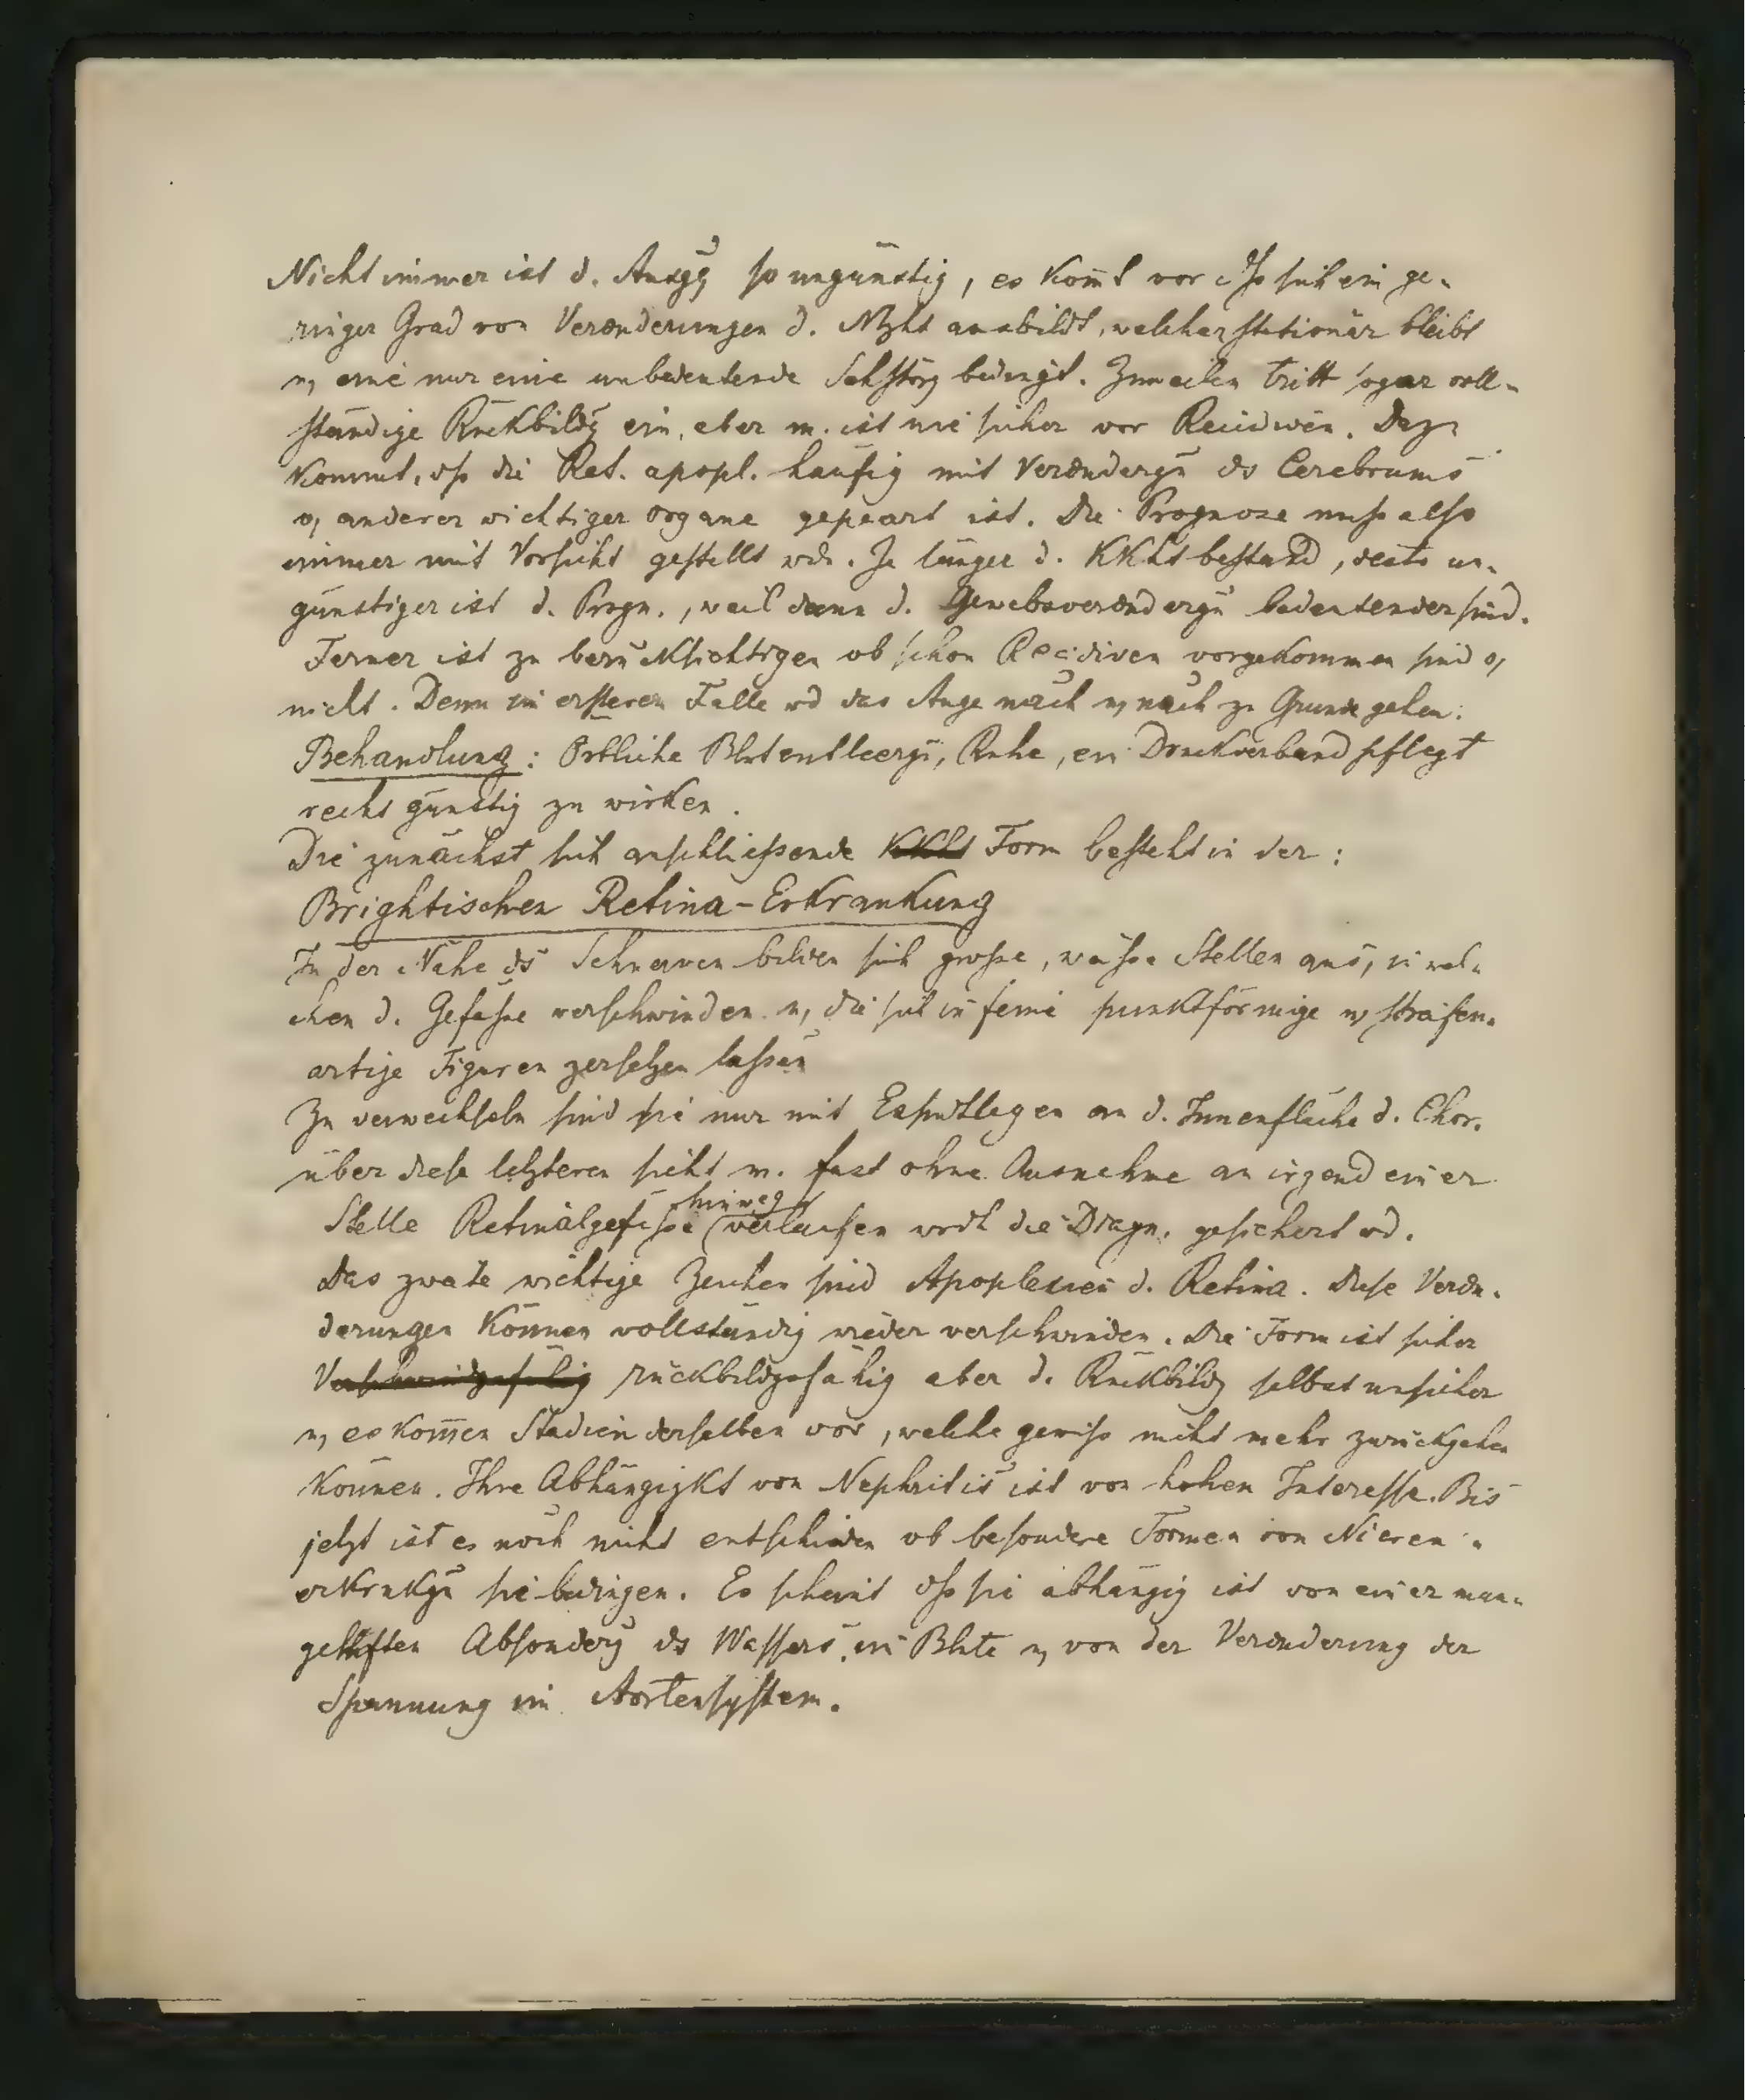 Nicht immer ist d. Ausgg so ungünstig, es kom̅t vor dß sich ein ge-
ringer Grad von Verändrungen d. Ntzht ausbildt, welcher stationär bleibt
u, eine nur eine unbedeutende Sehstörg bedingt. Zuweilen tritt sogar voll-
ständige Rückbildg ein, aber m. ist nie sicher vor Recidiven. Dazu
kommt, dß die Ret. apopl. häufig mit Veränderg̅n ds Cerebrums
o, anderer wichtiger Organe gepaart ist. Die Prognose muß also
immer mit Vorsicht gestellt wdn. Je länger d. Kkht bestand, desto un-
günstiger ist d. Progn., weil dann d. Gewebsveränderg̅n bedeutender sind.
Ferner ist zu berücksichtigen ob schon Recidiven vorgekommen sind o,
nicht. Denn im ersteren Falle wd das Auge nach u, nach zu Grunde gehen.
Behandlung: Örtliche Blutentleerg̅n, Ruhe, ein Druckverband pflegt
recht günstig zu wirken.
Die zunächst sich anschließende Kkht Form besteht in der:
Brightischen Retina-Erkrankung
In der Nähe ds Sehnerven bilden sich große, weiße Stellen aus, in wel-
chen d. Gefäße verschwinden u, die sich in feine punktförmige u, streifen-
artige Figuren zersetzen laßen
Zu verwechseln sind sie nur mit Exsudtlagen an d. Innenfläche d. Chor.
über diese letzteren sieht m. fast ohne Ausnahme an irgend einer
Stelle Retinalgefäße (hinweg verlaufen wodch die Diagn. gesichert wd.
Das zweite wichtige Zeichen sind Apoplexien d. Retina. Diese Verän-
derungen können vollständig wieder verschwinden. Die Form ist sicher
rückbildgsfähig aber d. Rückbildg selbst unsicher
u, es kom̅en Stadien derselben vor, welche gewiß nicht mehr zurückgehen
können. Ihre Abhängigkt von Nephritis ist von hohem Interesse. Bis
jetzt ist es noch nicht entschieden ob besondere Formen von Nieren-
erkrnkg̅n sie bedingen. Es scheint dß sie abhängig ist von einer man-
gelhaften Absonderg ds Wassers im Blute u, von der Veränderung der
Spannung im Aortensystem.